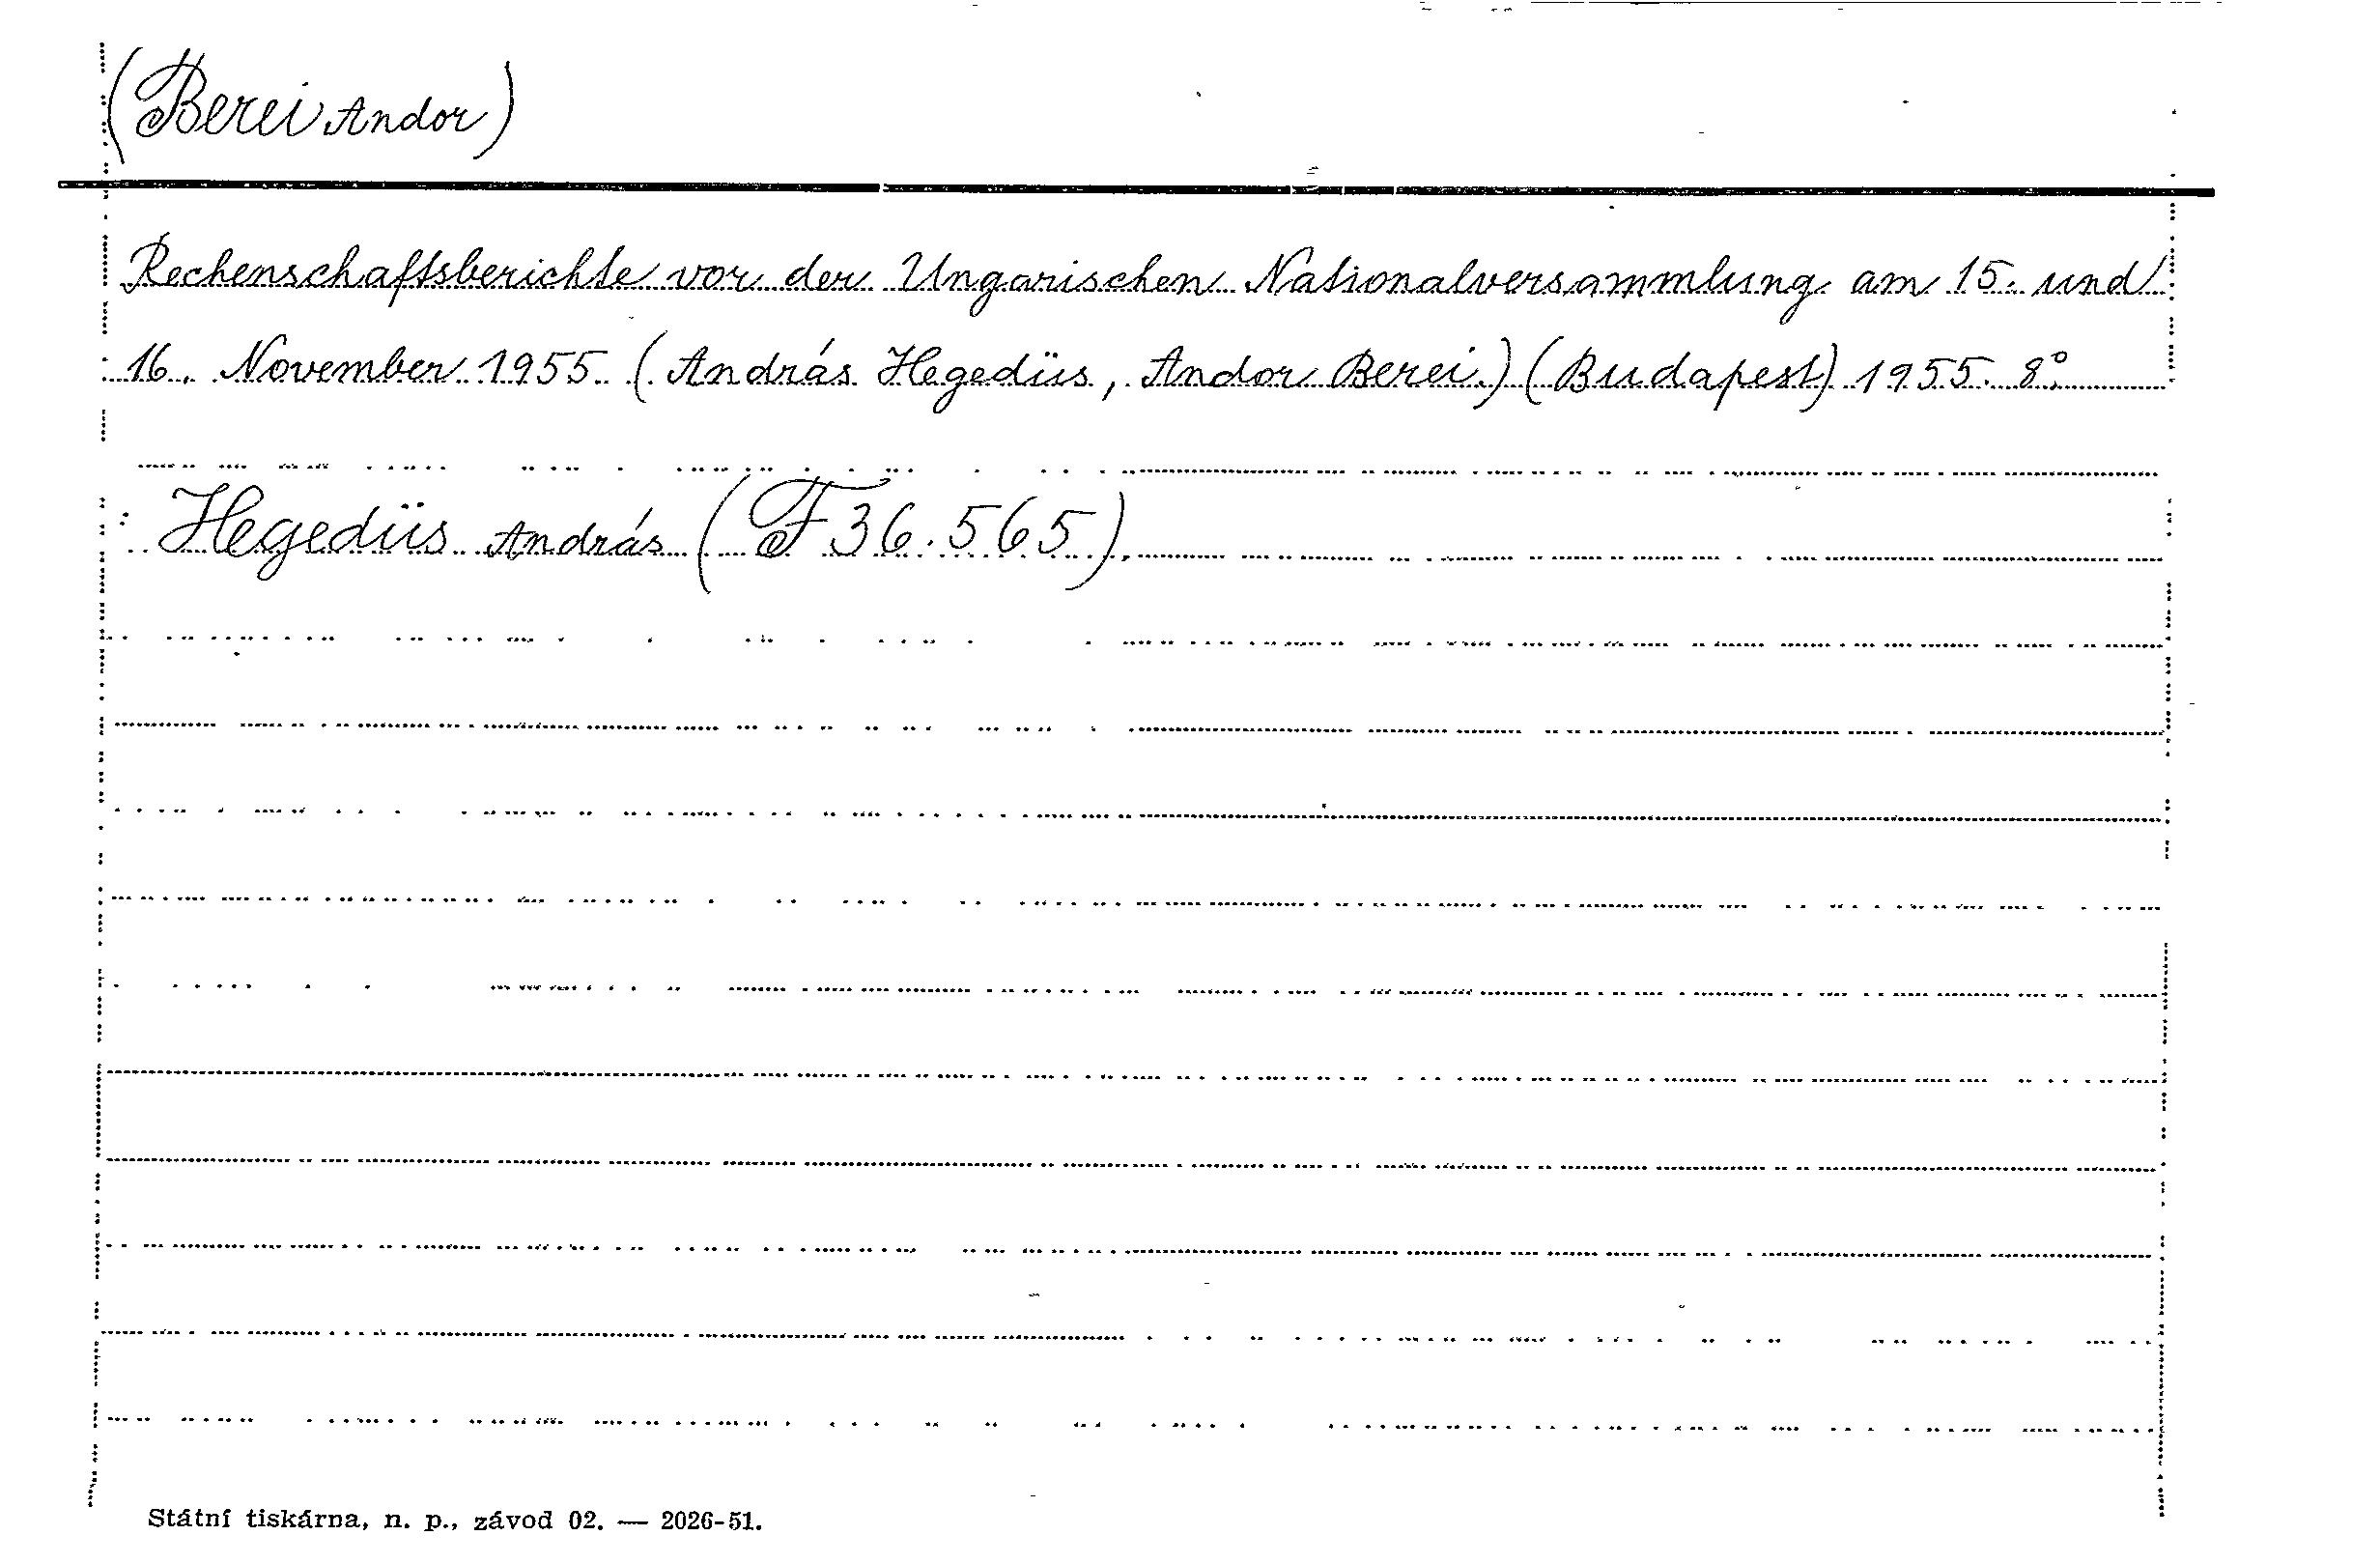 (Berei Andor)
Rechenschaftsberichte vor der Ungarischen Nationalversammlung am 15. und
16. November 1955. (András Hegedüs, Andor Berei.) (Budapest) 1955. 8°.
: Hegedüs András (F 36.565).
Státní tiskárna, n. p., závod 02. — 2026-51.